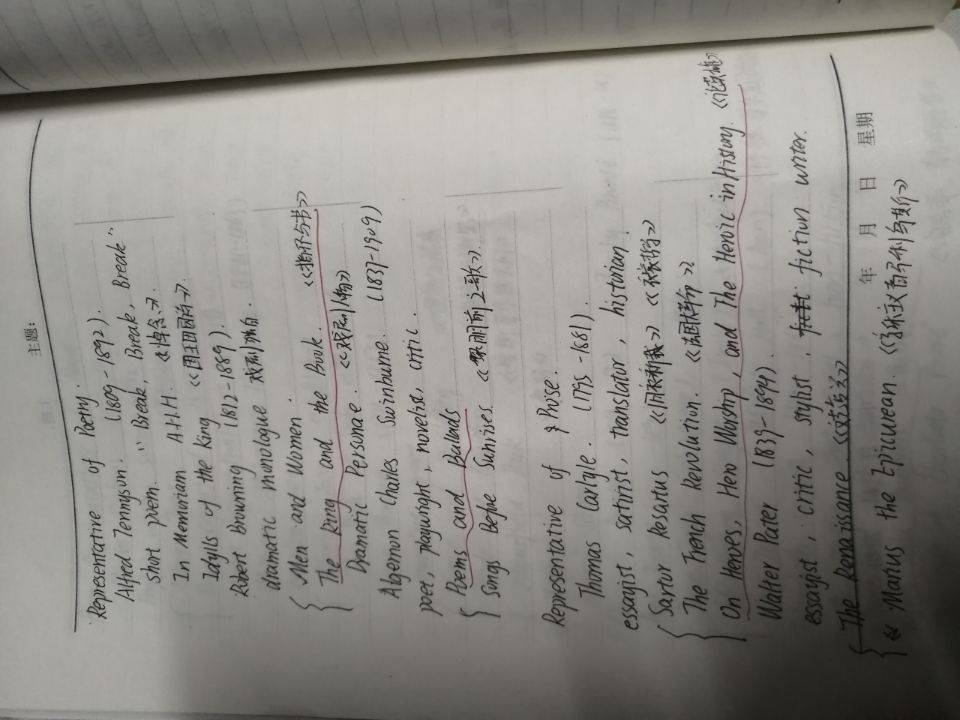 主题:
Representative of Poetry.
Alfred Tennyson. (1809-1892).
short poem. "Break, Break, Break"
In Memoriam A.H.H. 《悼念》
Idylls of the King 《国王田园诗》
Robert Browning (1812-1889).
dramatic monologue 戏剧独白.
Men and Women.
The Ring and the Book. 《指环与书》
Dramatic Personae. 《戏剧人物》
Algernon Charles Swinburne. (1837-1909)
poet, playwright, novelist, critic.
Poems and Ballads
Songs Before Sunrises. 《黎明前之歌》.
Representative of Prose.
Thomas Carlyle. (1795-1881).
essayist, satirist, translator, historian.
Sartor Resartus 《旧衣新裁》《衣裳哲学》
The French Revolution. 《法国大革命》
On Heroes, Hero Worship, and The Heroic in History. 《论英雄》
Walter Pater (1839-1894).
essayist, critic, stylist, fiction writer.
The Renaissance 《文艺复兴》
年 月 日 星期
《 Marius the Epicurean. 《享乐主义者马利乌斯》